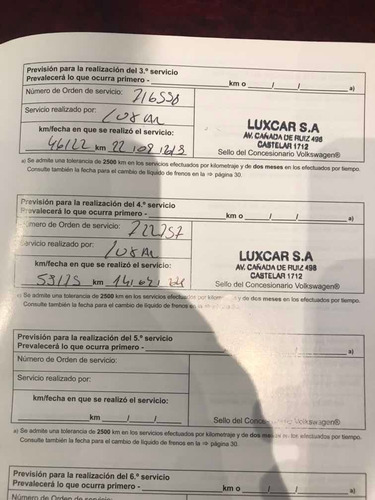 Previsión para la realización del 3.º servicio
Prevalecerá lo que ocurra primero - km o / / a)
Número de Orden de servicio: 216558
Servicio realizado por: LUXCAR
km/fecha en que se realizó el servicio:
46122 km 22 / 08 / 2013
LUXCAR S.A
AV. CAÑADA DE RUIZ 498
CASTELAR 1712
Sello del Concesionario Volkswagen®
a) Se admite una tolerancia de 2500 km en los servicios efectuados por kilometraje y de dos meses en los efectuados por tiempo.
Consulte también la fecha para el cambio de líquido de frenos en la ⇒ página 30.
Previsión para la realización del 4.º servicio
Prevalecerá lo que ocurra primero - km o / / a)
Número de Orden de servicio: 222757
Servicio realizado por: LUXCAR
km/fecha en que se realizó el servicio:
59175 km 14 / 02 /
LUXCAR S.A
AV. CAÑADA DE RUIZ 498
CASTELAR 1712
Sello del Concesionario Volkswagen®
a) Se admite una tolerancia de 2500 km en los servicios efectuados por kilometraje y de dos meses en los efectuados por tiempo.
Consulte también la fecha para el cambio de líquido de frenos en la ⇒ página 30.
Previsión para la realización del 5.º servicio
Prevalecerá lo que ocurra primero - km o / / a)
Número de Orden de servicio:
Servicio realizado por:
km/fecha en que se realizó el servicio:
km / /
Sello del Concesionario Volkswagen®
a) Se admite una tolerancia de 2500 km en los servicios efectuados por kilometraje y de dos meses en los efectuados por tiempo.
Consulte también la fecha para el cambio de líquido de frenos en la ⇒ página 30.
Previsión para la realización del 6.º servicio
Prevalecerá lo que ocurra primero - km o / / a)
Número de Orden de servicio: